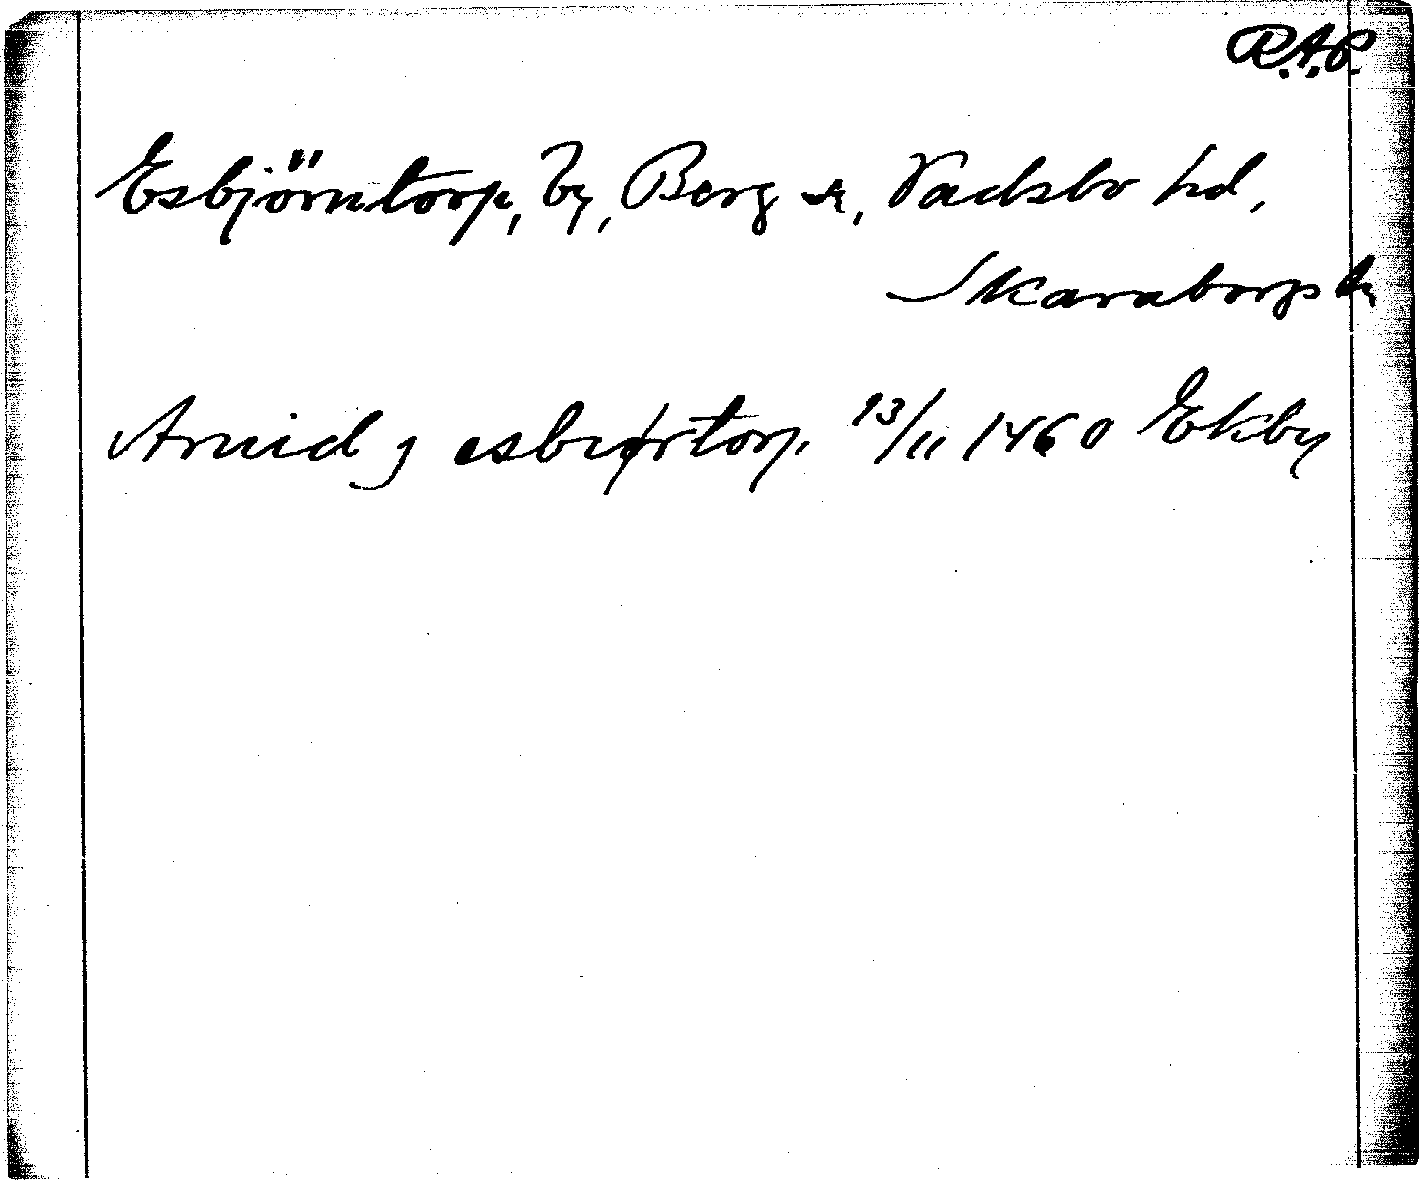 R.A.P.
Esbjörntorp, by, Berg sn, Vadsbo hd,
Skaraborgs län
Arvid j esbiørtorp 13/11 1460 Ekby